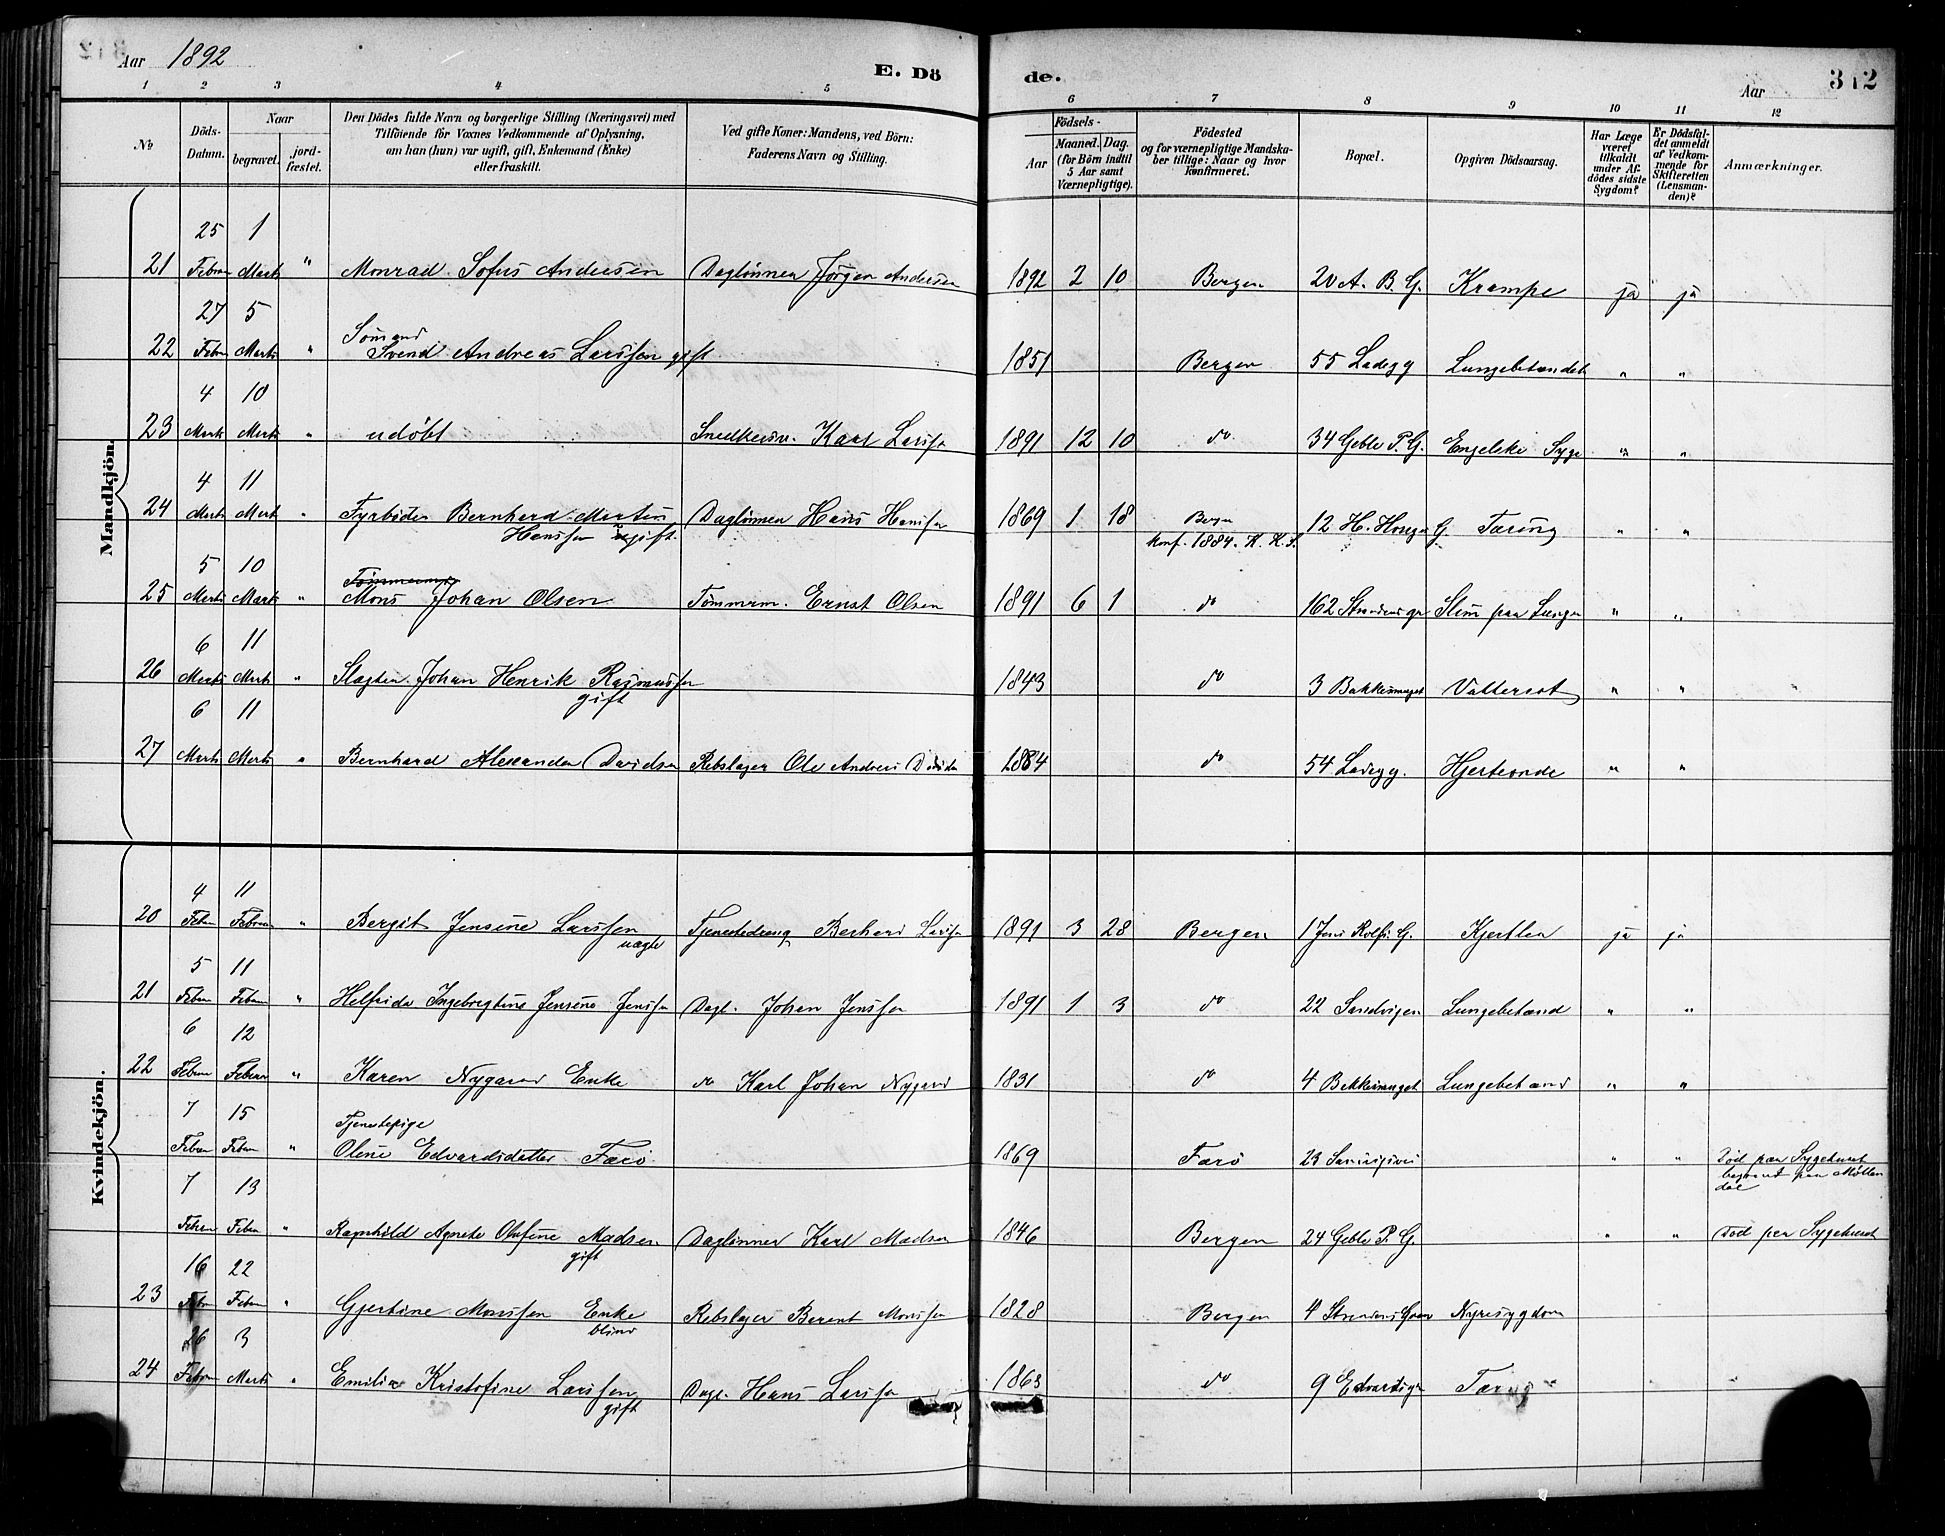 Aar 1892
E. Dö
de.
Aar
312
1 2 3 4 5 6 7 8 9 10 11 12
No
Döds-Datum.
Naar
begravet.
jord-fæstet.
Den Dödes fulde Navn og borgerlige Stilling (Næringsvei) med
Tilföiende för Voxnes Vedkommende af Oplysning,
om han (hun) var ugift, gift, Enkemand (Enke)
eller fraskilt.
Ved gifte Koner: Mandens, ved Börn:
Faderens Navn og Stilling.
Födsels-
Aar
Maaned. Dag.
(for Börn indtil
5 Aar samt
Værnepligtige).
Födested
og for værnepligtige Mandska-
ber tillige: Naar og hvor
konfirmeret.
Bopæl.
Opgiven Dödsaarsag.
Har Læge
været
tilkaldt
under Af-
dödes sidste
Sygdom?
Er Dödsfal-
det anmeldt
af Vedkom-
mende for
Skifteretten
(Lensman-
den)?
Anmærkninger.
Mandkjön.
25 1
21 Febru Marts " Monrad Sofus Andersen Daglønner Jörgen Andersen 1892 2 10 Bergen 20 A. B. G. Krampe ja ja
27 5
Sømand
22 Febru Marts " Svend Andreas Larssen gift 1851 Bergen 55 Ladegg Lungebetændel " "
4 10
23 Marts Marts " udøbt Snedkersv. Karl Larssen 1891 12 10 do 34 Geble P. G. Engelske Syge " "
4 11
24 Marts Marts " Fyrbøder Bernhard Martin Daglønner Hans Hanssen 1869 1 18 Bergen 12 H. G. Tæring " "
Hanssen ugift konf. 1884. K. K.
5 10
Tømmermand
25 Marts Marts " Mons Johan Olsen Tømmerm. Ernst Olsen 1891 6 1 do 162 Strandens gr Slim paa Lunger " "
6 11
26 Marts Marts " Slagter Johan Henrik Rasmussen 1843 do 3 Bakkesmuget Vattersot " " "
gift
6 11
27 Marts Marts " Bernhard Alexander Davidsen Rebslager Ole Andreas Davidsen 1884 do 54 Ladegg. Hjerteonde " "
Kvindekjön.
4 11
20 Febru Februar " Bergit Jensine Larssen Tjenestedreng Berhard Larssen 1891 3 28 Bergen 1 Jens Rolfs G. Kjertler ja ja
uægte
5 11
21 Febru Febru " Helfrida Ingebregtine Jensine Jenssen Dagl. Johan Jenssen 1891 1 3 do 22 Sandvigen Lungebetænd " "
6 12
22 Februar Februar " Karen Nygaard Enke do Karl Johan Nygaard 1831 do 4 Bekkesmuget Lungebetænd " "
7 15
Tjenestepige
Febru Febru " Oline Edvardsdatter Færø 1869 Færø 23 Sandvigsvei " " Død paa Sygehuset
begravet paa Møllen
dal
7 13
Febru Febru " Ragnhild Agnete Olufine Madsen Daglønner Karl Madsen 1846 Bergen 24 Geble P. G. " " Død paa Sygehuset
gift
16 22
23 Febru Febru " Gjertine Monssen Enke Rebslager Berent Monssen 1828 Bergen 4 Nyresygdom
blind
26 3
24 Februar Marts " Emilie Kristofine Larssen Dagl. Hans Larssen 1863 do 9 Edvardsgr Tæring
gift